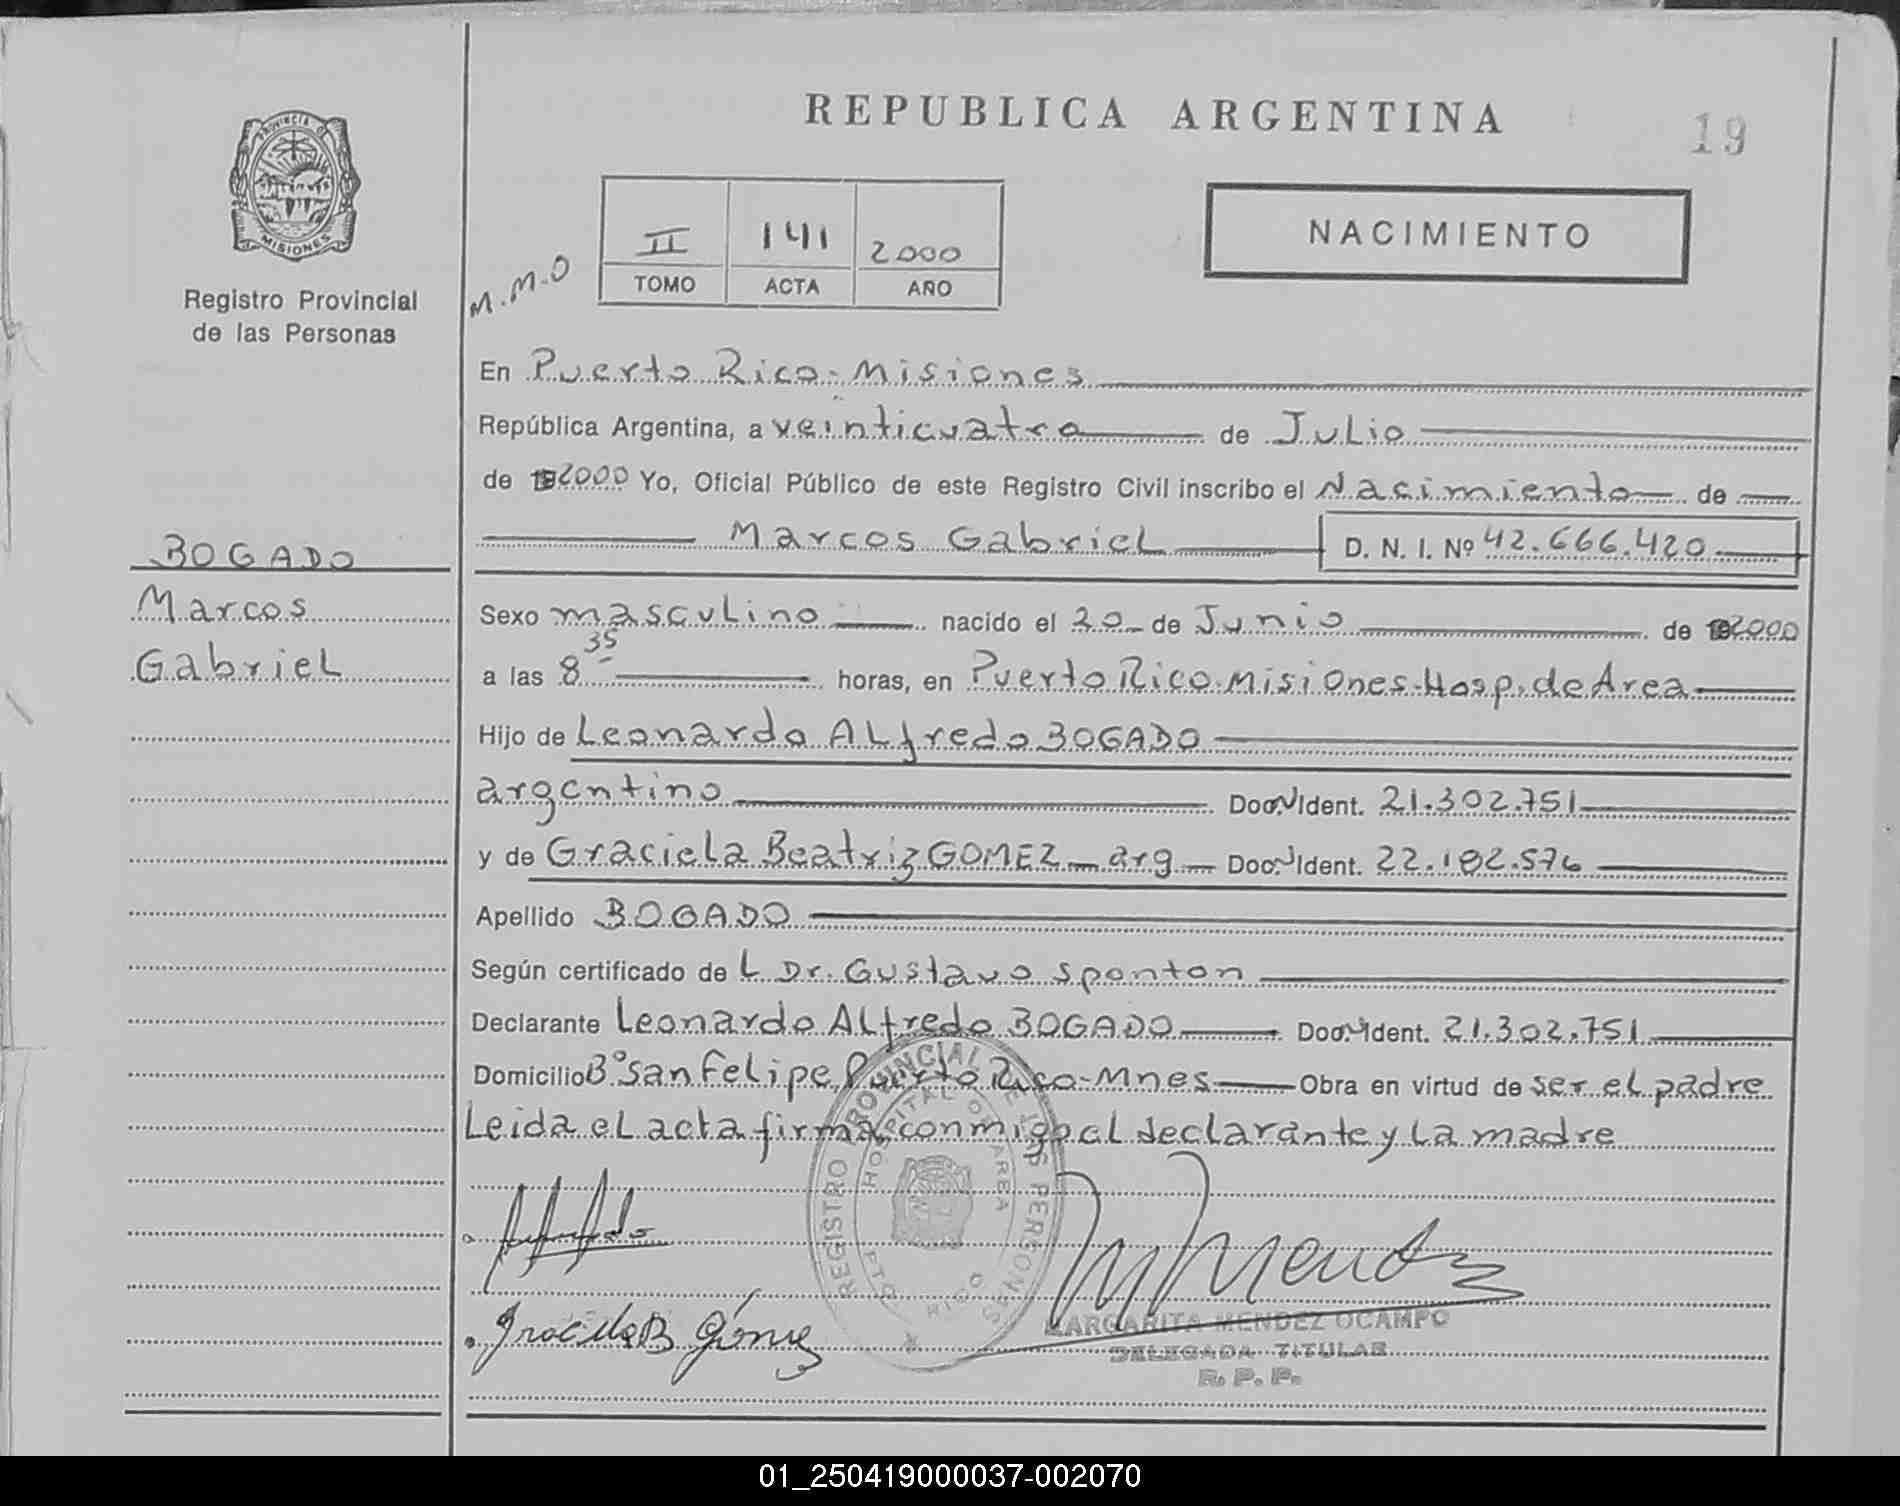 REPUBLICA ARGENTINA
19
PROVINCIA DE
MISIONES
Registro Provincial
de las Personas
M.M.O
II 141 2000
TOMO ACTA AÑO
NACIMIENTO
En Puerto Rico - Misiones
República Argentina, a veinticuatro de Julio
de 192000 Yo, Oficial Público de este Registro Civil inscribo el Nacimiento de
Marcos Gabriel D. N. I. Nº 42.666.420
BOGADO
Marcos
Gabriel
Sexo masculino nacido el 20 de Junio de 2000
a las 8 35 horas, en Puerto Rico-Misiones-Hosp. de Area
Hijo de Leonardo Alfredo BOGADO
argentino Doc. Ident. 21.302.751
y de Graciela Beatriz GOMEZ - arg Doc. Ident. 22.182.576
Apellido BOGADO
Según certificado de L Dr. Gustavo Sponton
Declarante Leonardo Alfredo BOGADO Doc. Ident. 21.302.751
Domicilio Bº San Felipe, Puerto Rico-Mnes Obra en virtud de ser el padre
Leida el acta firma conmigo el declarante y la madre
REGISTRO PROVINCIAL DE LAS PERSONAS
HOSPITAL DE AREA
PTO. RICO
Graciela B Gómez
MARGARITA MENDEZ OCAMPO
DELEGADA TITULAR
R. P. P.
01_250419000037-002070